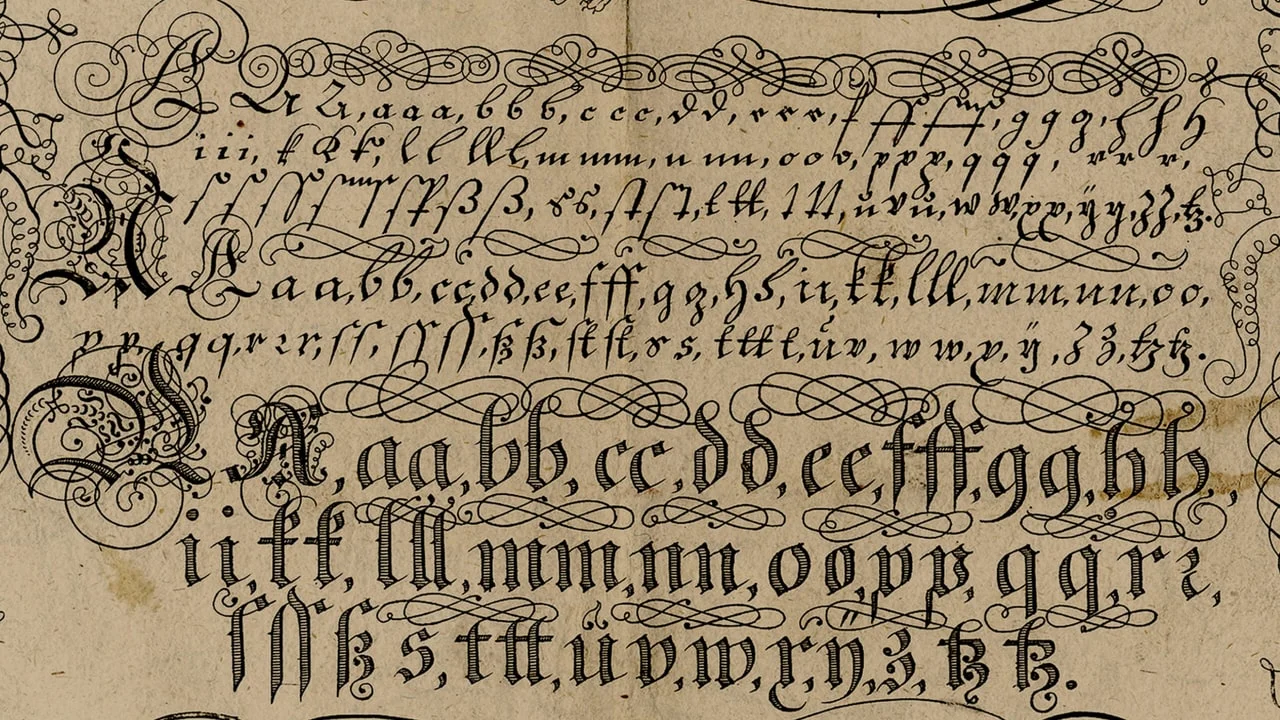 A A A, a a a, b b b, c c c, d d, e e e, f ff ſſ ſſ, g g g, h h h
i i i, k k k, l l ll l, m m m, n n n, o o o, p p p, q q q, r r r,
ſ ſ ſſ ſſ ſp ß ß, s s, ſt ſt, t tt, t tt, ü v ü, w w, x x, ÿ y, z z, tz.
A a a, b b, c c, d d, e e, f ff, g g, h h, i i, k k, l ll, m m, n n, o o,
p p, q q, r r r, ſ ſ, ſſ ſſ, ß ß, ſt ſt, s s, t tt t, ů v, w w, x, ÿ, z z, tz tz.
A, a a, b b, c c, d d, e e, f ff, g g, h h,
i i, k k, l ll, m m, n n, o o, p p, q q, r r,
ſ ſſ ß s, t tt, ü v, w, x, ÿ, z, tz tz.